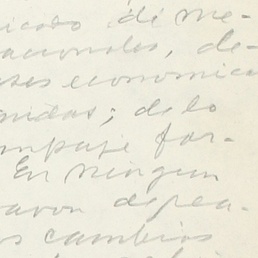 icado de me-
acionales, de-
ses economica
nidas; de lo
mpaje for-
En ningun
avor depen-
os cambios